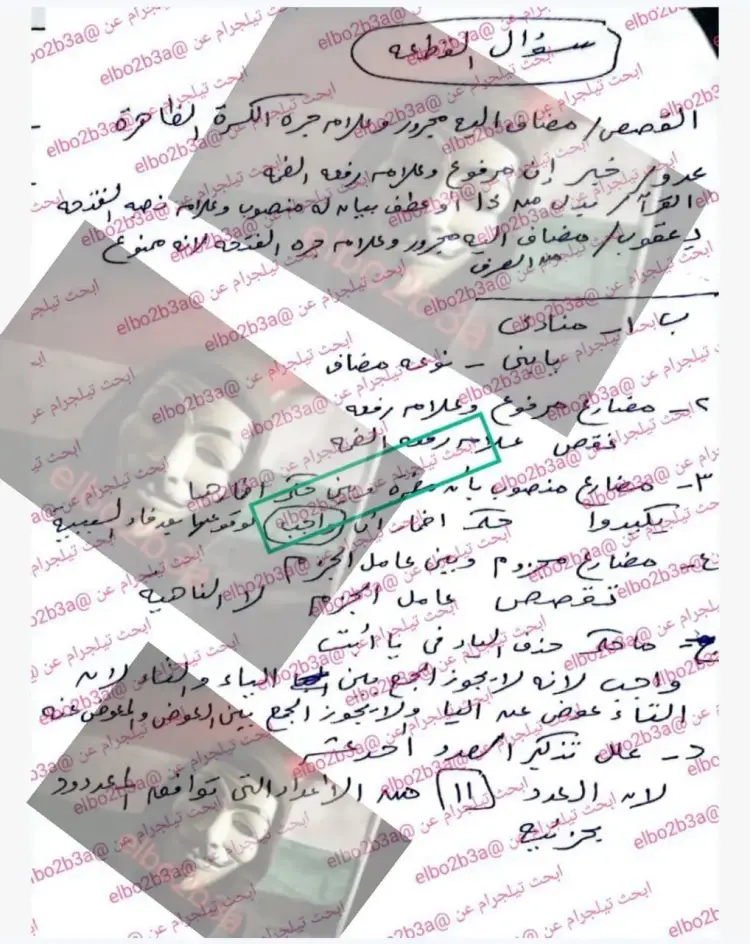 سؤال القطعه
القصص / مضاف اليه مجرور وعلامه جره الكسرة الظاهرة
عدو / خبر إن مرفوع وعلامه رفعه الضمه
القرآن / بدل من هذا او عطف بيان له منصوب وعلامه نصبه الفتحه
يعقوب / مضاف اليه مجرور وعلامه جره الفتحه لانه ممنوع
من الصرف
ب ١ـ منادى
يا بنى ـ نوعه مضاف
٢ـ مضارع مرفوع وعلامه رفعه
نقص علامه رفعه الضمه
٣ـ مضارع منصوب بأن مضمرة وبين حكم اضمارها
يكيدوا حكم اضمارها واجب لوقوعها بعد فاء السببيه
٤ـ مضارع مجزوم وبين عامل الجزم
تقصص عامل الجزم لا الناهيه
ج ـ ما حكم حذف الياء في يا أبت
واجب لانه لا يجوز الجمع بين الياء والتاء لان
التاء عوض عن اليا ولا يجوز الجمع بين العوض والمعوض عنه
د ـ علل تذكير العدد أحد عشر
لان العدد 11 من الاعداد التى توافق المعدود
بجزئيه
ابحث تيلجرام عن @elbo2b3a
elbo2b3a